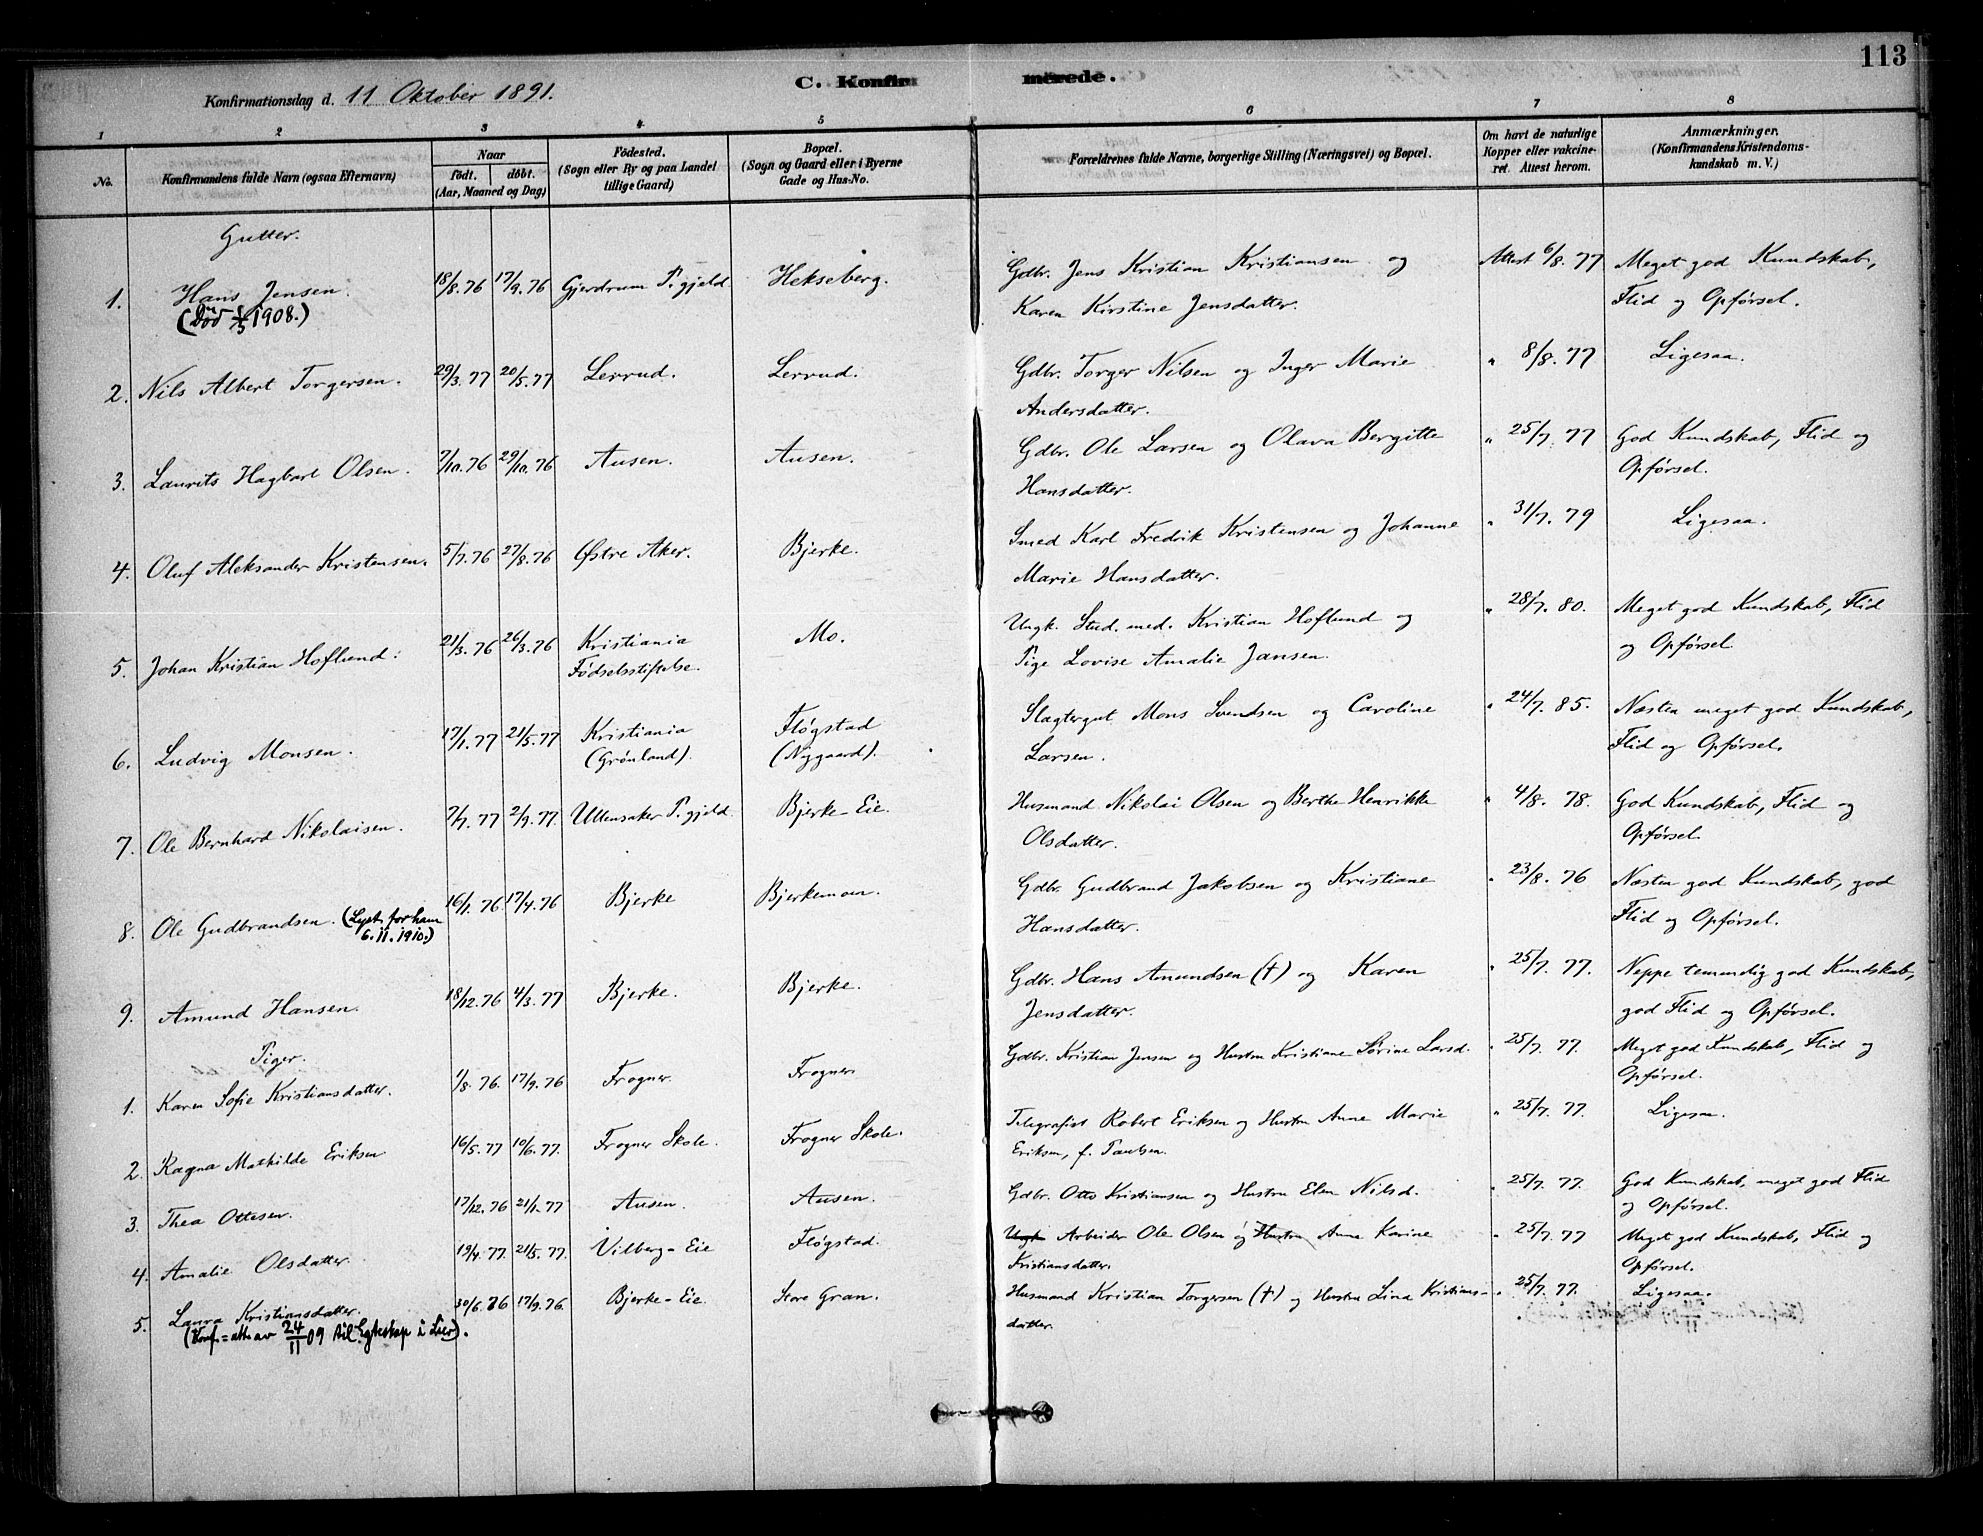 113
C. Konfirmerede.
Konfirmationsdag d. 11 Oktober 1891.
1 2 3 4 5 6 7 8
No.
Konfirmandens fulde Navn (ogsaa Efternavn)
Naar
født. døbt.
(Aar, Maaned og Dag)
Fødested.
(Sogn eller By og paa Landet
tillige Gaard)
Bopæl.
(Sogn og Gaard eller i Byerne
Gade og Hus-No.
Forældrenes fulde Navne, borgerlige Stilling (Næringsvei) og Bopæl.
Om havt de naturlige
Kopper eller vakcine-
ret. Attest herom.
Anmærkninger.
(Konfirmandens Kristendoms-
kundskab m. V.)
Gutter.
1. Hans Jensen. 18/8.76 17/9.76 Gjerdrum P.gjeld Hekseberg. Gdbr. Jens Kristian Kristiansen og Attest 6/8. 77 Meget god Kundskab,
(Død 1/5 1908.) Karen Kirstine Jensdatter. Flid og Opførsel.
2. Nils Albert Torgersen. 29/3.77 20/5.77 Lerrud. Lerrud. Gdbr. Torger Nilsen og Inger Marie " 8/8. 77 Ligesaa.
Andersdatter.
3. Laurits Hagbart Olsen. 7/10.76 29/10.76 Ausen. Ausen. Gdbr. Ole Larsen og Olava Bergitte " 25/7. 77 God Kundskab, Flid og
Hansdatter. Opførsel.
4. Oluf Aleksander Kristensen. 5/7.76 27/8.76 Østre Aker. Bjerke. Smed Karl Fredrik Kristensen og Johanne " 31/7. 79 Ligesaa.
Marie Hansdatter.
5. Johan Kristian Hoflund. 21/3.76 26/3.76 Kristiania Mo. Ungk. Stud. med. Kristian Hoflund og " 28/7. 80. Meget god Kundskab, Flid
Fødselsstiftelse. Pige Lovise Amalie Jansen. og Opførsel
6. Ludvig Monsen. 17/1.77 21/5.77 Kristiania Fløgstad Slagtergut Mons Svendsen og Caroline " 24/7. 85. Næsten meget god Kundskab,
(Grønland). (Nygaard). Larsen. Flid og Opførsel.
7. Ole Bernhard Nikolaisen. 7/7.77 2/9.77. Ullensaker P.gjeld. Bjerke-Eie. Husmand Nikolai Olsen og Berthe Henrikke " 4/8. 78. God Kundskab, Flid og
Olsdatter. Opførsel.
8. Ole Gudbrandsen. (Lyst for ham 16/1.76 17/4.76 Bjerke Bjerkemoen. Gdbr. Gudbrand Jakobsen og Kristiane " 23/8. 76 Næsten god Kundskab, god
6.11.1910.) Hansdatter. Flid og Opførsel.
9. Amund Hansen. 18/12.76 4/3.77 Bjerke. Bjerke. Gdbr. Hans Amundsen (†) og Karen " 25/7. 77. Neppe temmelig god Kundskab,
Jensdatter. god Flid og Opførsel.
Piger.
1. Karen Sofie Kristiansdatter. 1/8.76. 17/9.76 Frogner. Frogner. Gdbr. Kristian Jensen og Hustru Kristiane Sørine Larsd. " 25/7. 77. Meget god Kundskab, Flid og
Opførsel.
2. Ragna Mathilde Eriksen 16/5.77 10/6.77. Frogner Skole. Frogner Skole. Telegrafist Robert Eriksen og Hustru Anne Marie " 25/7. 77. Ligesaa.
Eriksen, f. Paulsen.
3. Thea Ottesen. 17/12.76 21/1.77 Ausen. Ausen. Gdbr. Otto Kristiansen og Hustru Elen Nilsd. " 25/7. 77. God Kundskab, meget god Flid
og Opførsel.
4. Amalie Olsdatter. 19/4.77. 21/5.77. Vilberg-Eie Fløgstad. Ungk. Arbeider Ole Olsen og Hustru Anne Karine " 25/7. 77 Meget god Kundskab, Flid og
Kristiansdatter. Opførsel.
5. Laura Kristiansdatter. 30/6.76 17/9.76. Bjerke-Eie. Store Gran. Husmand Kristian Torgersen (†) og Hustru Lina Kristians- " 25/7. 77. Ligesaa.
(Konf.=att. av 24/11 09 til Egteskap i Lier). datter.